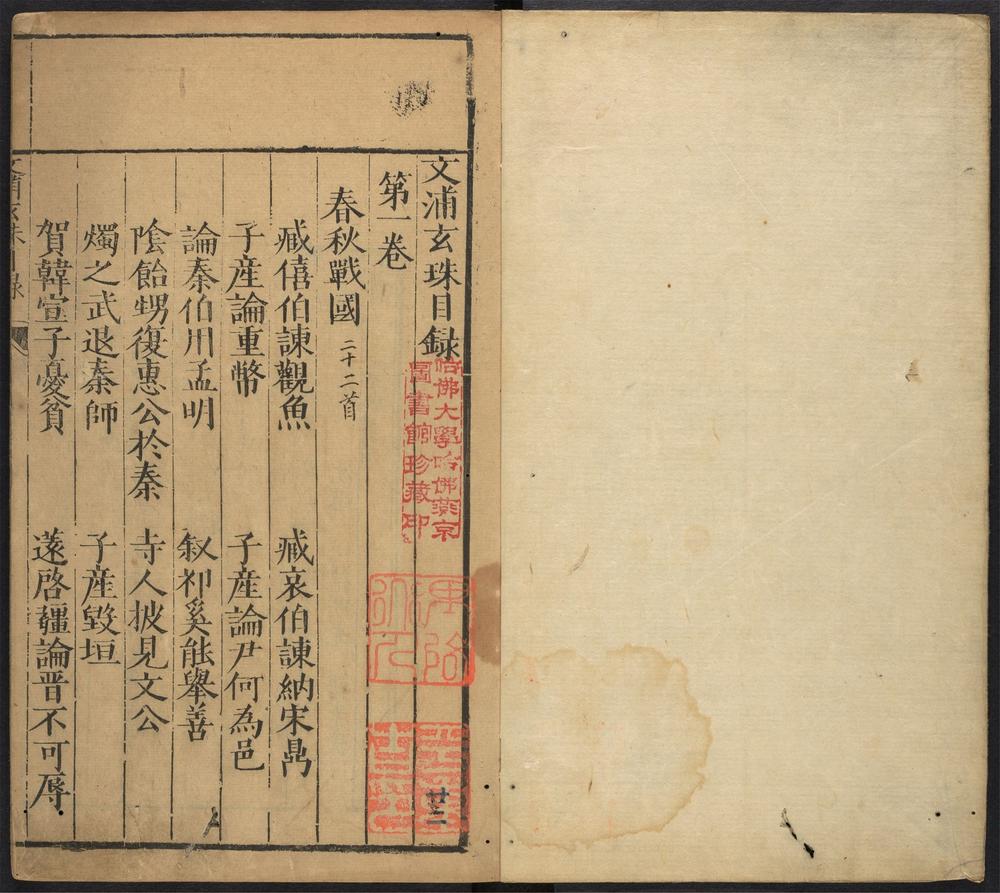 文浦玄珠目録
第一卷
春秋戰國 二十二首
臧僖伯諫觀魚 臧哀伯諫納宋鼎
子產論重幣 子產論尹何為邑
論秦伯用孟明 叙祁奚能舉善
陰飴甥復惠公於秦 寺人披見文公
燭之武退秦師 子產毀垣
賀韓宣子憂貧 薳啓疆論晋不可辱
哈佛大學哈佛燕京
圖書館珍藏印
廿三